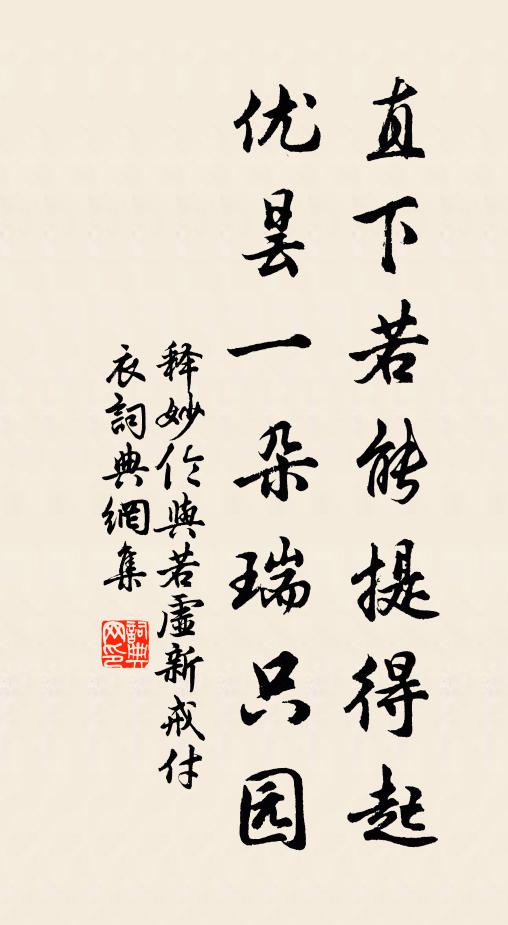 直下若能提得起
优昙一朵瑞只园
释妙伦与若虚新戒付
衣詞典網集
詞典网印